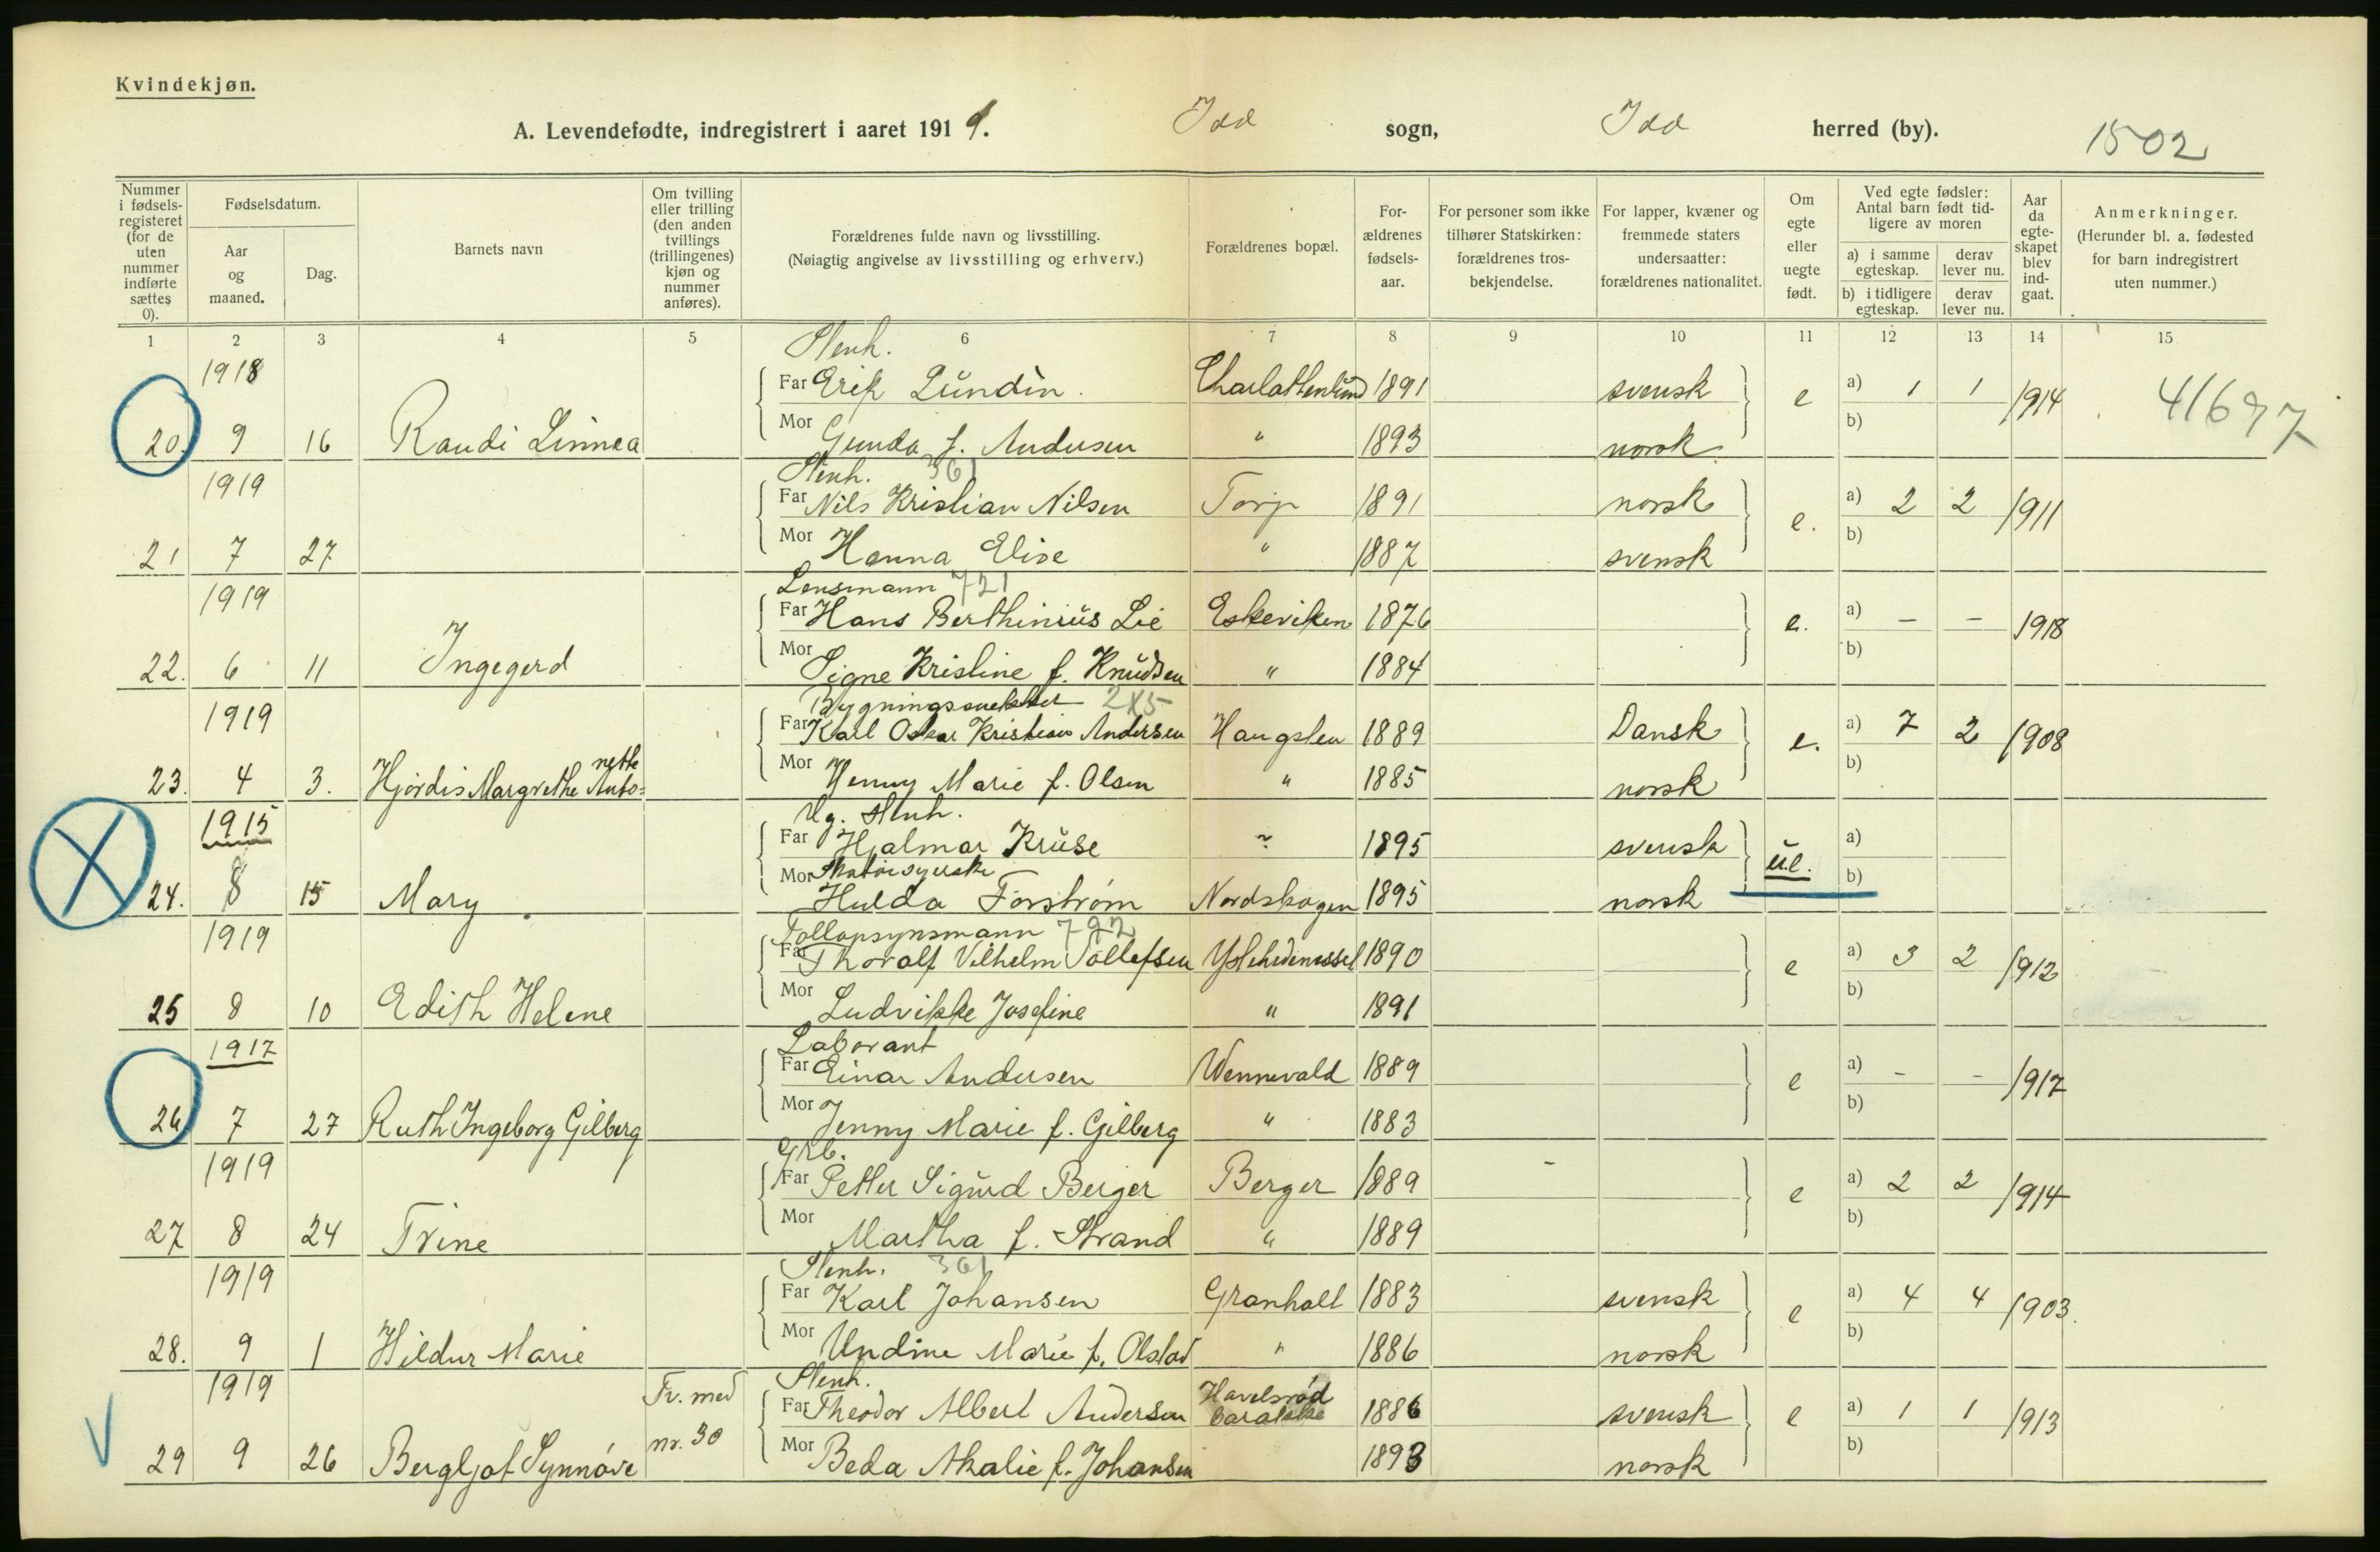 Kvindekjøn.
A. Levendefødte, indregistrert i aaret 1919. Idd sogn, Idd herred (by). 1502
Nummer i fødselsregisteret (for de uten nummer indførte sættes 0).
Fødselsdatum.
Aar og maaned.
Dag.
Barnets navn
Om tvilling eller trilling (den anden tvillings (trillingenes) kjøn og nummer anføres).
Forældrenes fulde navn og livsstilling.
(Nøiagtig angivelse av livsstilling og erhverv.)
Forældrenes bopæl.
Forældrenes fødselsaar.
For personer som ikke tilhører Statskirken: forældrenes trosbekjendelse.
For lapper, kvæner og fremmede staters undersaatter: forældrenes nationalitet.
Om egte eller uegte født.
Ved egte fødsler: Antal barn født tidligere av moren
a) i samme egteskap. derav lever nu.
b) i tidligere egteskap. derav lever nu.
Aar da egteskapet blev indgaat.
Anmerkninger.
(Herunder bl. a. fødested for barn indregistrert uten nummer.)
1 2 3 4 5 6 7 8 9 10 11 12 13 14 15
1918 Stenh.
Far Erik Lundin. Charlottenlund 1891 svensk e a) 1 1 1914 41697
20. 9 16 Randi Linnea Mor Gunda f. Andersen " 1893 norsk b)
1919 Stenh. 361
Far Nils Kristian Nilsen Torp 1891 norsk e. a) 2 2 1911
21 7 27 Mor Hanna Elise " 1887 svensk b)
1919 Lensmann 721
Far Hans Berthinius Lie Eskeviken 1876 e. a) – – 1918
22. 6 11 Ingegerd Mor Signe Kristine f. Knudsen " 1884 b)
1919 Bygningssnekker 2X5
Far Karl Oskar Kristian Andersen Haugsten 1889 Dansk e. a) 7 2 1908
23. 4 3. Hjördis Margrethe Antonette Mor Henny Marie f. Olsen " 1885 norsk b)
1915 Ug. Stenh.
Far Hjalmar Kruse ~ 1895 svensk u.e. a)
24. 8 15 Mary Mor Hulda Forström Nordskogen 1895 norsk b)
1919 Tollopsynsmann 792
Far Thoralf Vilhelm Tollefsen 1890 e a) 3 2 1912
25 8 10 Edith Helene Mor Ludvikke Josefine " 1891 b)
1917 Laborant
Far Einar Andersen Wennevald 1889 e a) – – 1917
26 7 27 Ruth Ingeborg Gilberg Mor Jenny Marie f. Gilberg " 1883 b)
1919 Grb.
Far Petter Sigurd Berger Berger 1889 e a) 2 2 1914
27 8 24 Trine Mor Martha f. Strand " 1889 b)
1919 Stenh. 361
Far Karl Johansen Granholt 1883 svensk e a) 4 4 1903.
28. 9 1 Hildur Marie Mor Undine Marie f. Olstad " 1886 norsk b)
1919 Tv. med nr. 30 Stenh.
Far Theodor Albert Andersen Havelsröd barakke 1886 svensk e a) 1 1 1913
29 9 26 Bergljot Synnöve Mor Beda Akalie f. Johansen 1893 norsk b)